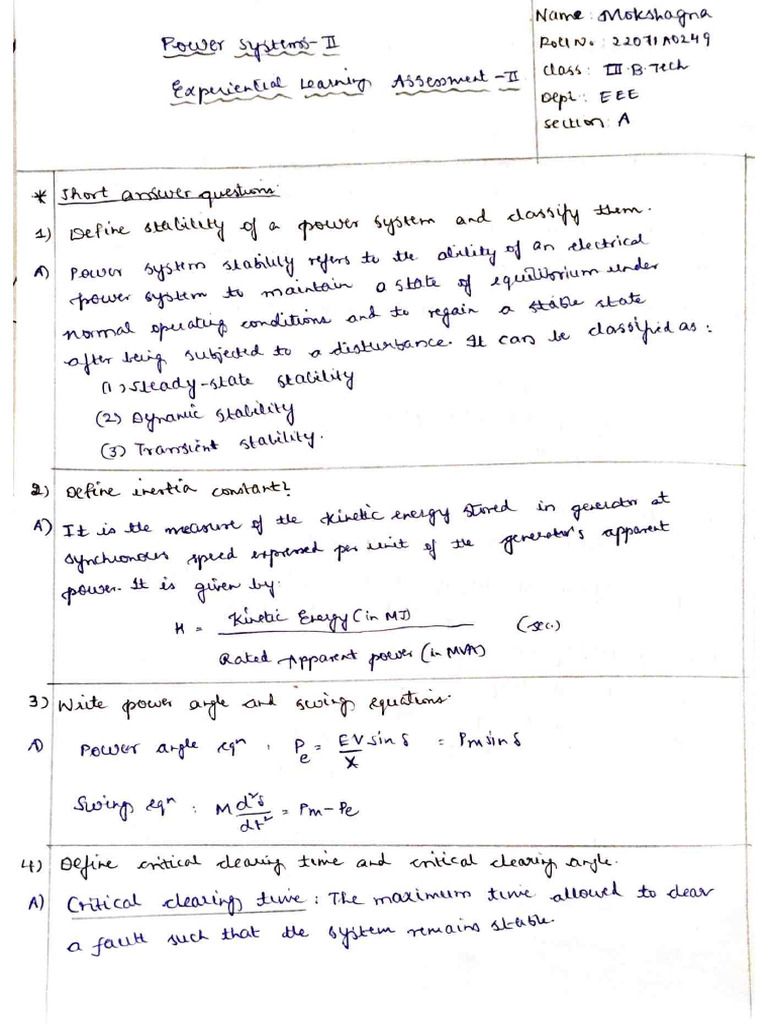 Power Systems-II
Experiential Learning Assessment-II
Name: Mokshagna
Roll No: 22071A0249
Class: III.B.Tech
Dept: EEE
Section: A
* Short answer questions:
1) Define stability of a power system and classify them.
A) Power system stability refers to the ability of an electrical
power system to maintain a state of equilibrium under
normal operating conditions and to regain a stable state
after being subjected to a disturbance. It can be classified as:
(1) Steady-state stability
(2) Dynamic stability
(3) Transient stability.
2) Define inertia constant?
A) It is the measure of the kinetic energy stored in generator at
synchronous speed expressed per unit of the generator's apparent
power. It is given by:
H = Kinetic Energy (in MJ) / Rated Apparent power (in MVA) (sec.)
3) Write power angle and swing equations.
A) Power angle eqn : Pe = EV sin δ / X = Pm sin δ
Swing eqn : M d²δ/dt² = Pm - Pe
4) Define critical clearing time and critical clearing angle.
A) Critical clearing time : The maximum time allowed to clear
a fault such that the system remains stable.